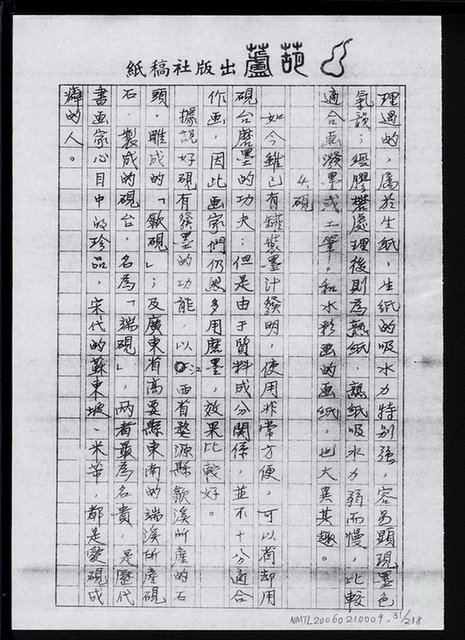 葫蘆出版社稿紙
理過的,屬於生紙,生紙的吸水力特別強,容易顯現墨色
氣韻;經膠礬處理後則為熟紙,熟紙吸水力弱而慢,比較
適合畫潑墨或工筆。和水彩画的画紙,也大異其趣。
4.硯
如今雖已有罐裝墨汁發明,使用非常方便,可以省却用
硯台磨墨的功夫;但是由于質料成分關係,並不十分適合
作画,因此画家們仍然多用磨墨,效果比較好。
據說好硯有發墨的功能,以江西省婺源縣歙溪所產的石
頭,雕成的「歙硯」;及廣東省高要縣東南的端溪所產硯
石,製成的硯台,名為「端硯」,兩者最為名貴,是歷代
書画家心目中的珍品,宋代的蘇東坡、米芾,都是愛硯成
癖的人。
NMTL20060210009, 31/218